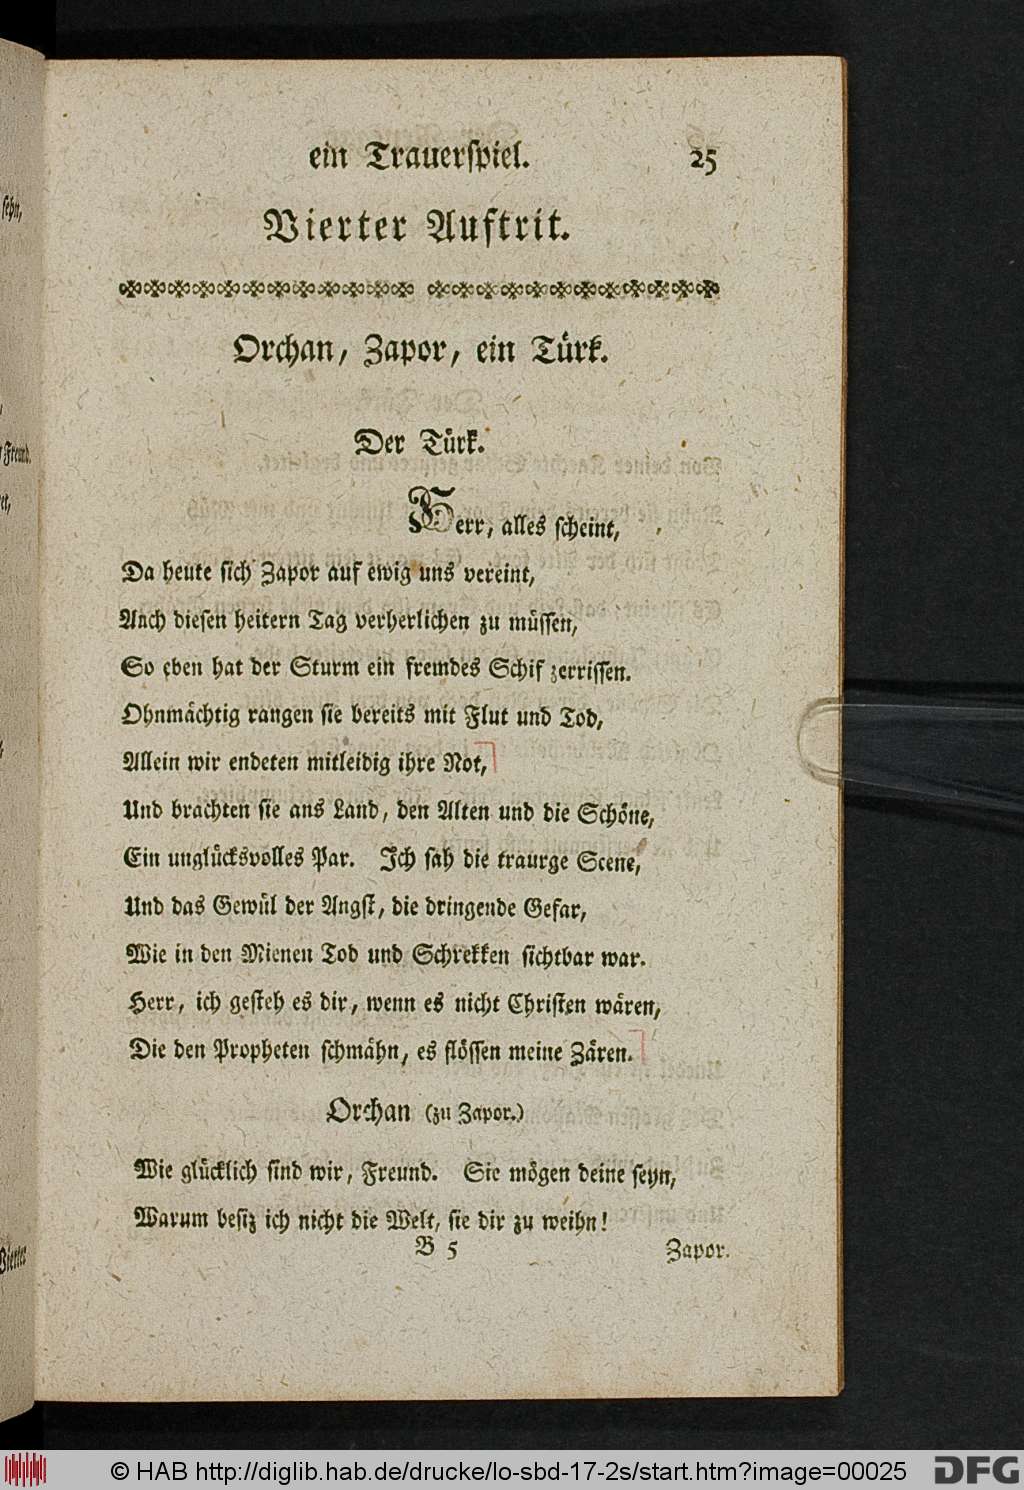 ein Trauerspiel. 25
Vierter Auftrit.
Orchan, Zapor, ein Türk.
Der Türk.
Herr, alles scheint,
Da heute sich Zapor auf ewig uns vereint,
Auch diesen heitern Tag verherlichen zu müssen,
So eben hat der Sturm ein fremdes Schif zerrissen.
Ohnmächtig rangen sie bereits mit Flut und Tod,
Allein wir endeten mitleidig ihre Not,
Und brachten sie ans Land, den Alten und die Schöne,
Ein unglücksvolles Par. Ich sah die traurge Scene,
Und das Gewül der Angst, die dringende Gefar,
Wie in den Mienen Tod und Schrekken sichtbar war.
Herr, ich gesteh es dir, wenn es nicht Christen wären,
Die den Propheten schmähn, es flössen meine Zären.
Orchan (zu Zapor.)
Wie glücklich sind wir, Freund. Sie mögen deine seyn,
Warum besiz ich nicht die Welt, sie dir zu weihn!
B 5 Zapor.
seyn,
Freund.
Vierter
© HAB http://diglib.hab.de/drucke/lo-sbd-17-2s/start.htm?image=00025
DFG